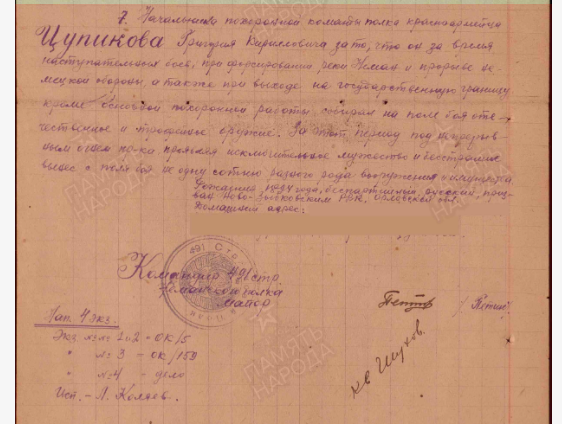 7. Начальника похоронной команды полка красноармейца
ЦУПИКОВА Григория Кирилловича за то, что он за время
наступательных боев, при форсировании реки Неман и прорыве не-
мецкой обороны, а также при выходе на государственную границу
кроме основной похоронной работы, собирал на поле боя оте-
чественное и трофейное оружие. За этот период под непрерыв-
ным огнем пр-ка проявляя исключительное мужество и бесстрашие
вынес с поля боя не одну сотню разного рода вооружения и
Рождения года, беспартийный, русский, приз-
ван Ново- РВК, Орловской обл.
Домашний адрес:
491 Стр
Командир 491 стр
полка
майор
Нап. 4 экз.
Экз. №№ 1 и 2 - ОК/5
" №3 - ОК/159
" №4 - дело
Исп. - Л.
ПАМЯТЬ
НАРОДА
ПАМЯТЬ
НАРОДА